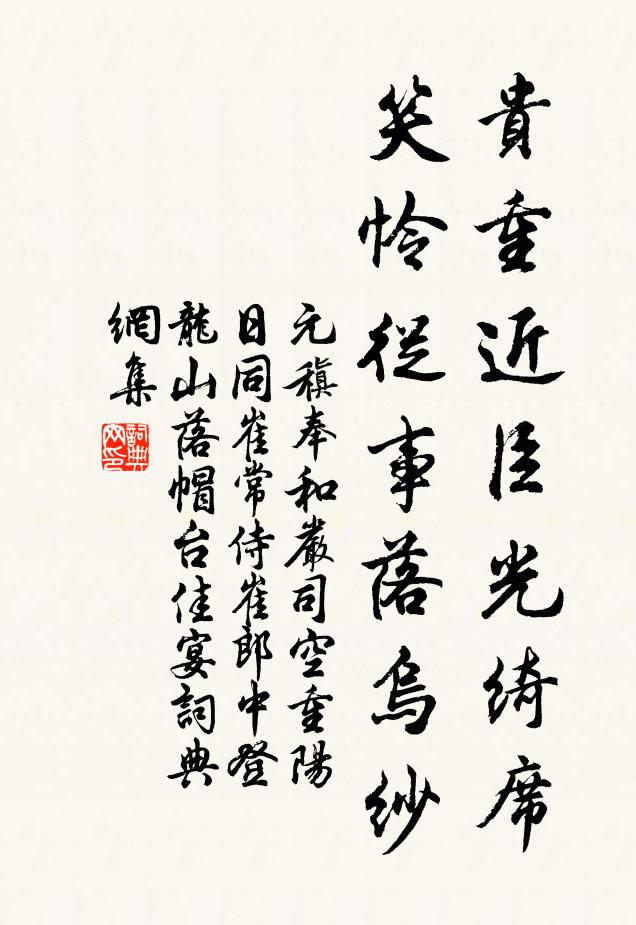 貴重近臣光綺席
笑怜從事落烏紗
元稹奉和嚴司空重陽
日同崔常侍崔郎中登
龍山落帽台佳宴詞典
網集
詞典
网印